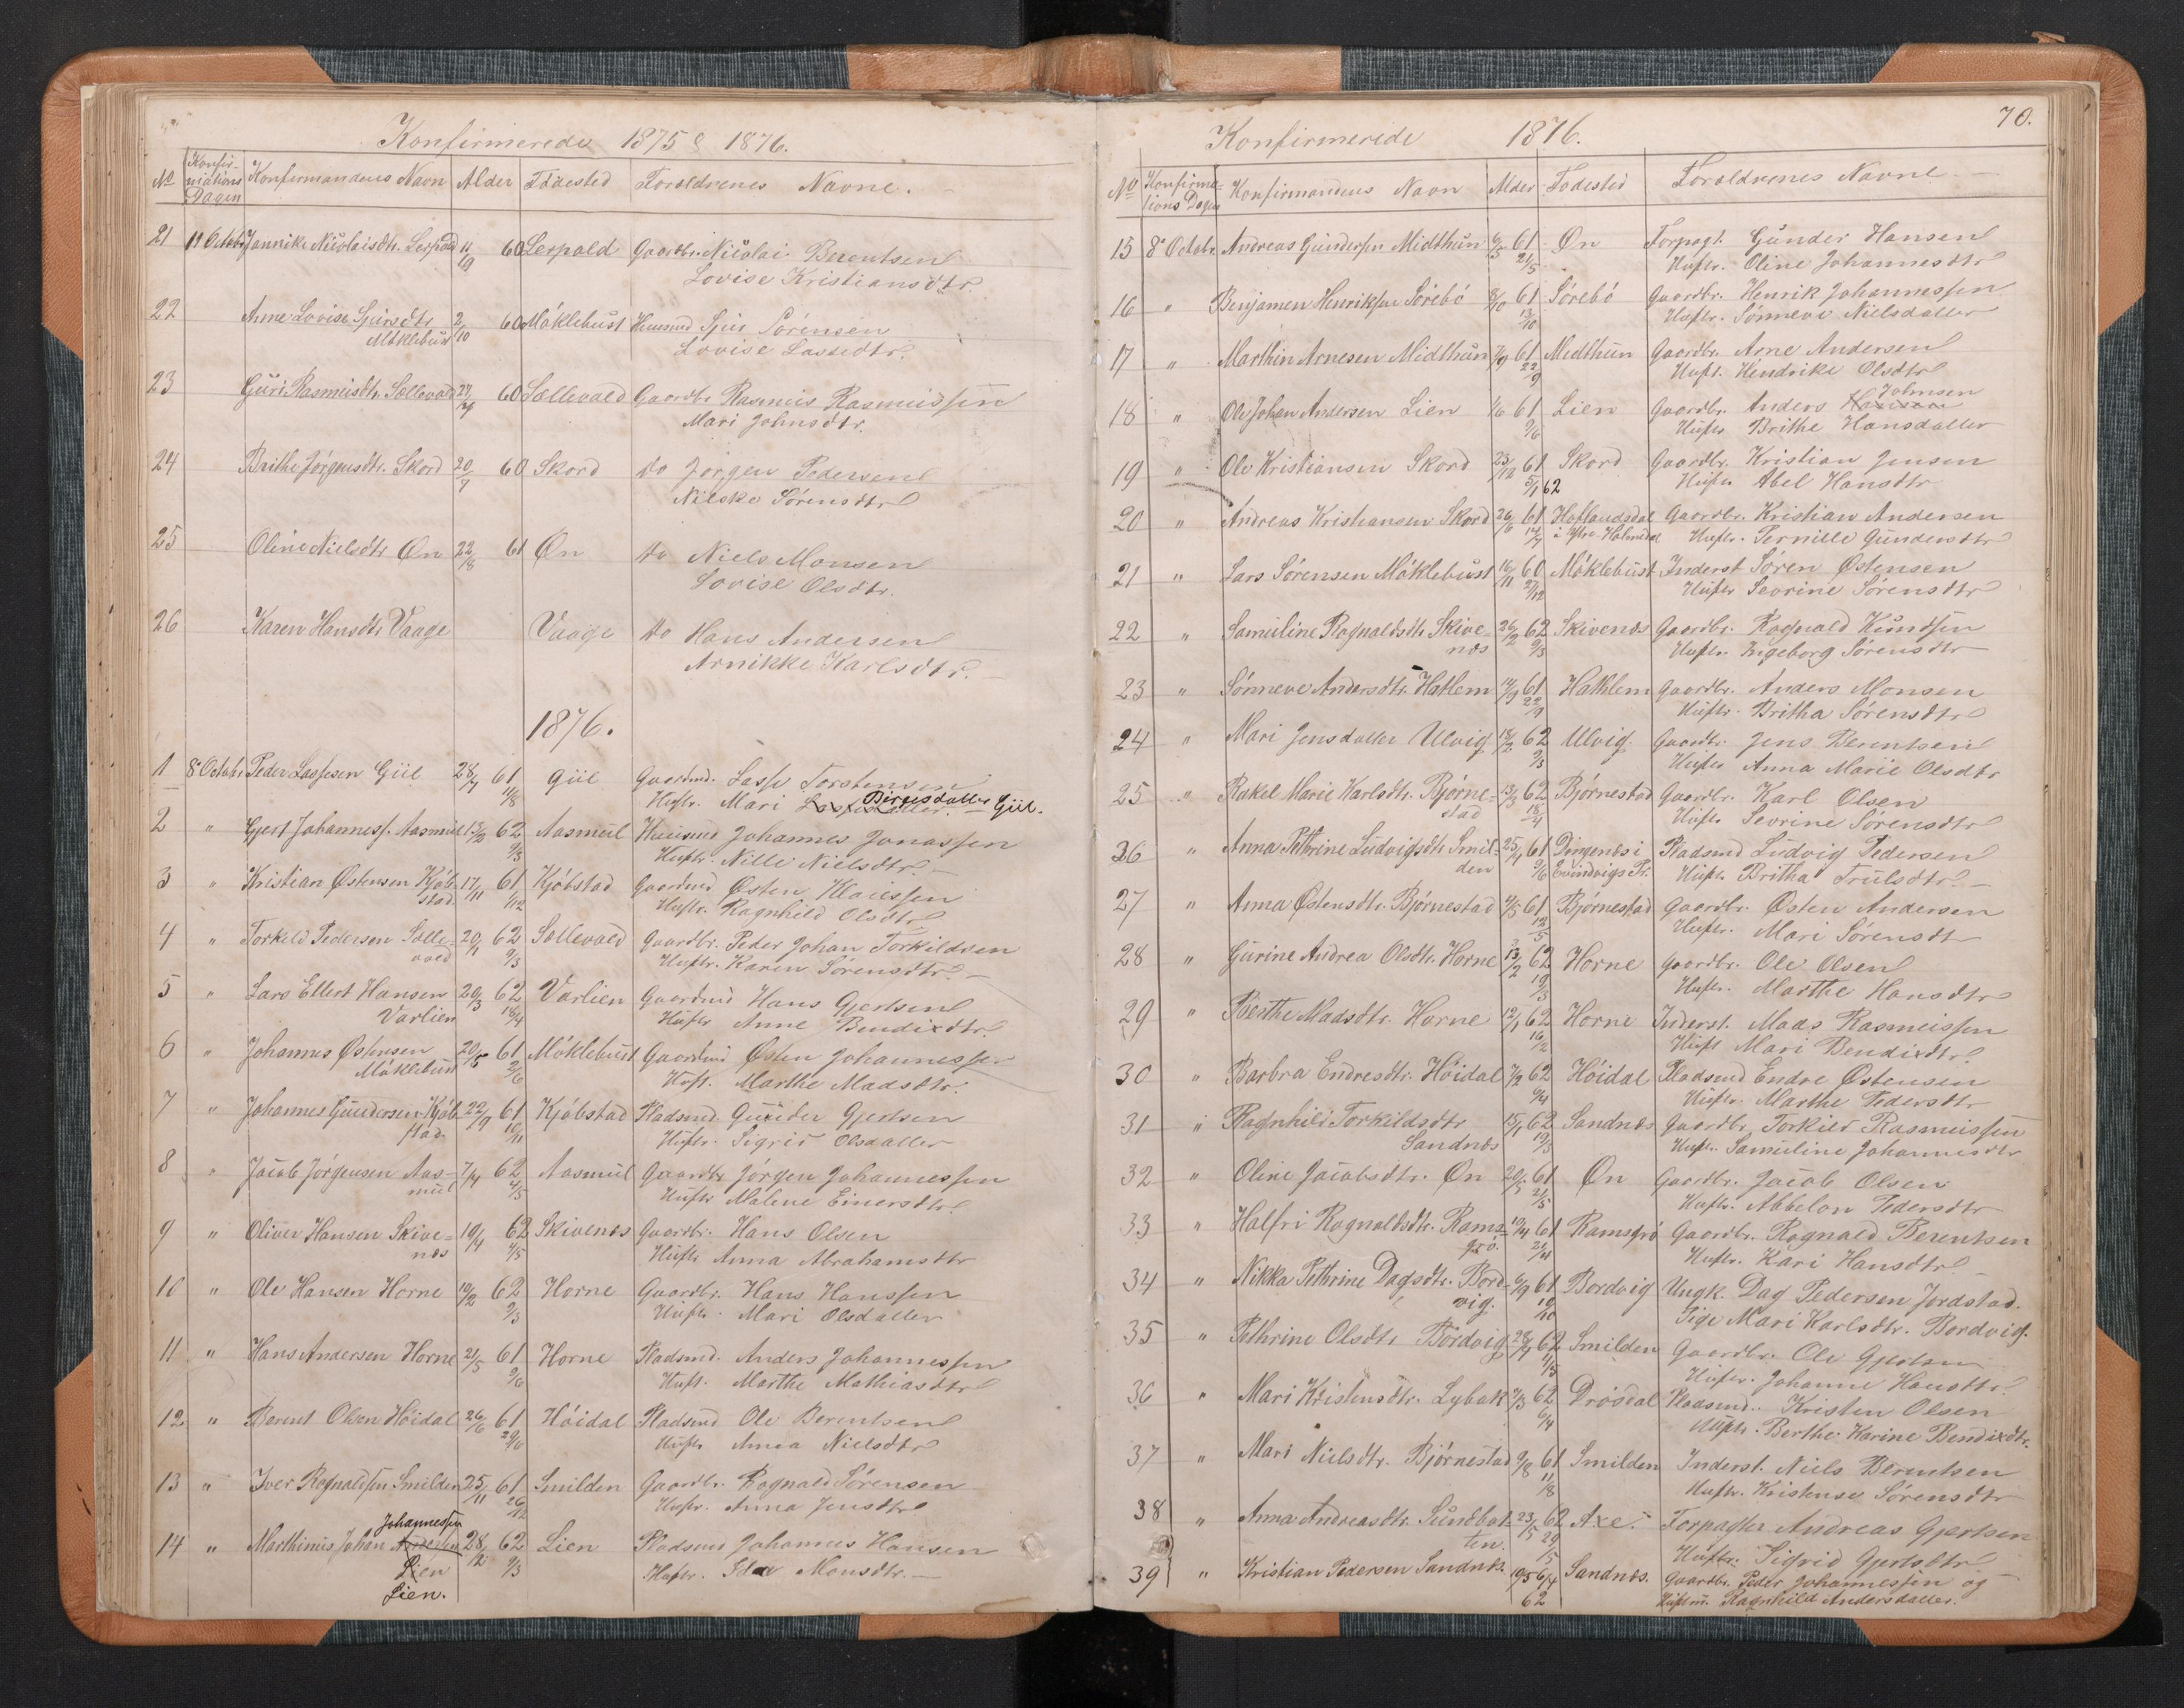 Konfirmerede 1875 & 1876.
No Konfirmations Dagen Konfirmandens Navn Alder Födested Foreldrenes Navne.
21 11 Octobr Jannike Nicolaisdtr. Lespold 11/9 60 Lespold Gaardbr. Nicolai Berentsen
Lovise Kristiansdtr.
22 Anne Lovise Sjursdtr 2/10 60 Möklebust Huusmd Sjur Sörensen
Möklebust Lovise Lassedtr.
23 Guri Rasmusdtr. Sællevold 60 Sællevold Gaardbr Rasmus Rasmussen
Mari Johnsdtr.
24 Brithe Jörgensdtr. Skord 20/7 60 Skord do Jörgen Pedersen
Nilske Sörensdtr
25 Oline Nielsdtr Øn 22/8 61 Øn do Niels Monsen
Lovise Olsdtr.
26 Karen Hansdtr Vaage Vaage do Hans Andersen
Arnikke Karlsdtr.
1876.
1 8de Octobr Peder Lassesen Giil 28/7 61 11/8 Giil Gaardmd. Lasse Torstensen
Hustr. Mari Birgesdatter Giil.
2 " Gjert Johanness. Aasmul 13/2 62 9/3 Aasmul Huusmd Johannes Jonassen
Hustr. Nille Nielsdtr.
3 " Kristian Østensen Kjöb- 17/11 61 Kjöbstad Gaardmd Østen Klaussen
stad /12 Hustr. Ragnhild Olsdtr
4 " Torkild Pedersen Sölle- 20/1 62 Søllevold Gaardbr. Peder Johan Torkildsen
vold 9/3 Hustr. Karen Sörensdtr
5 " Lars Ellert Hansen 20/3 62 Varlien Gaardmd Hans Gjertsen
Varlien 18/4 Hustr Anne Bendixdtr.
6 " Johannes Østensen 20/5 61 Möklebust Gaardmd Østen Johannessen
Möklebust 2/6 Hustr. Marthe Madsdtr.
7 " Johannes Gundersen Kjöb- 22/9 61 Kjöbstad Pladsmd. Gunder Gjertsen
stad 10/11 Hustr. Sigrid Olsdatter
8 " Jacob Jörgensen Aas- 7/4 62 Aasmul Gaardbr Jörgen Johannessen
mul 4/5 Hustr Malene Einersdtr
9 " Oliver Hansen Skive- 19/4 62 Skivenes Gaardbr. Hans Olsen
nes 4/5 Hustr Anna Abrahamsdtr
10 " Ole Hansen Horne 19/2 62 Horne Gaardbr. Hans Hanssen
9/3 Hustr. Mari Olsdatter
11 " Hans Andersen Horne 21/5 61 Horne Pladsmd. Anders Johannessen
9/6 Hustr. Marthe Mathiasdtr
12 " Berent Olsen Höidal 26/6 61 Höidal Pladsmd Ole Berentsen
29/6 Hustr Anna Nielsdtr
13 " Iver Ragnaldsen Smilden 25/11 61 Smilden Gaardbr. Ragnald Sörensen
26/12 Hustr. Anna Jensdtr
Johannessen
14 " Marthinus Johan Andersen 28/12 62 Lien Pladsmd Johannes Hansen
Lien 9/3 Hustr. Ida Monsdtr.
Lien.
70.
Konfirmerede 1876.
No Konfirmations Dagen Konfirmandens Navn Alder Födested Foreldrenes Navne
15 8de Octobr. Andreas Gundersen Midthun 6/5 61 Øn Forpagt. Gunder Hansen
21/5 Hustr. Oline Johannesdtr
16 " Benjamen Henriksen Sörebö 8/10 61 Sörebö Gaardbr. Henrik Johannessen
13/10 Hustr. Sönneve Nielsdatter
17 " Marthin Arnesen Midthun 7/9 61 Midthun Gaardbr. Arne Andersen
22/9 Hust. Hendrike Olsdtr
Johnsen
18 " Ole Johan Andersen Lien 1/6 61 Lien Gaardbr. Anders Hansen
9/6 Hustr Brithe Hansdatter
19 " Ole Kristiansen Skord 23/12 61 Skord Gaardbr. Kristian Jensen
5/1 62 Hustr Abel Hansdtr
20 " Andreas Kristiansen Skord 26/6 61 Haflandsdal Gaardbr. Kristian Andersen
14/7 i Ytre Holmedal Hustr. Pernille Gundersdtr
21 " Lars Sörensen Möklebust 16/11 60 Möklebust Inderst Sören Østensen
27/12 Hustr Sevrine Sörensdtr
22 " Samuline Ragnaldsdtr Skive- 26/2 62 Skivenes Gaardbr. Ragnald Knudsen
nes 9/3 Hustr. Ingeborg Sörensdtr
23 " Sönneve Andersdtr. Hatlem 14/9 61 Hathlem Gaardbr. Anders Monsen
22/9 Hustr. Britha Sörensdtr
24 " Mari Jensdatter Ulvig 18/2 62 Ulvig. Gaardbr. Jens Berentsen
9/3 Hustr Anna Marie Olsdtr
25 " Rakel Marie Karlsdtr. Björne- 13/3 62 Björnestad Gaardbr. Karl Olsen
stad 18/4 Hustr Sevrine Sörensdtr
26 " Anna Pethrine Ludvigsdtr Smil- 25/1 61 Dingenes i Pladsmd Ludvig Pedersen
den 9/6 Evindvigs Pr. Hustr Britha Trulsdtr.
27 " Anna Østensdtr. Björnestad 4/5 61 Björnestad Gaardbr. Østen Andersen
12/5 Hustr. Mari Sörensdtr
28 " Gurine Andrea Olsdtr. Horne 13/2 62 Horne Gaardbr. Ole Olsen
19/3 Hustr. Marthe Hansdtr
29 " Berthe Madsdtr. Horne 12/1 62 Horne Inderst. Mads Rasmussen
16/2 Hust Mari Bendixdtr.
30 " Barbra Endresdtr. Höidal 7/2 62 Höidal Pladsmd Endre Østensen
9/4 Hustr. Marthe Pedersdtr
31 " Ragnhild Torkildsdtr 15/1 62 Sandnæs Gaardbr. Torkild Rasmussen
Sandnæs 19/3 Hustr. Samuline Johannesdtr
32 " Oline Jacobsdtr. Øn 20/5 61 Øn Gaardbr. Jacob Olsen
2/5 Hustr. Abbelon Pedersdtr
33 " Halfri Ragnaldsdtr. Rams- 19/4 61 Ramsgrö Gaardbr. Ragnald Berentsen
grö. 21/4 Hustr. Kari Hansdtr
34 " Nikka Pethrine Dagsdtr. Bord- 6/9 61 Bordvig Ungk. Dag Pedersen Jordstad.
vig. 19/10 Pige Mari Karlsdtr. Bordvig.
35 " Pethrine Olsdtr Bordvig 28/1 62 Smilden Gaardbr. Ole Gjertsen
4/5 Hustr. Johanne Hansdtr.
36 " Mari Kristensdtr. Lybak 7/3 62 Drösdal Pladsmd. Kristen Olsen
6/4 Hustr. Berthe Karine Bendixdtr.
37 " Mari Nielsdtr. Björnestad 9/8 61 Smilden Inderst. Niels Berentsen
11/8 Hustr. Kristense Sörensdtr
38 " Anna Andreasdtr. Sundbot- 23/5 62 Axe. Forpagter Andreas Gjertsen
ten. 29/5 Hustr. Sigrid Gjertsdtr
39 " Kristian Pedersen Sandnæs. 19/5 6/4 Sandnæs. Gaardbr. Peder Johannessen og
62 Hustru Ragnhild Andersdatter.